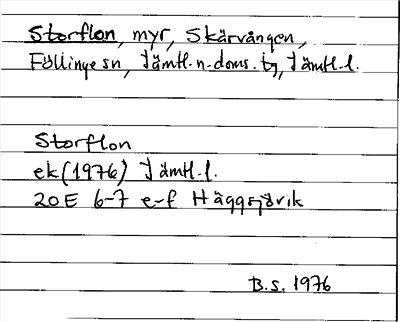 Storflon, myr, Skärvången,
Föllinge sn, Jämtl. n. doms. tg, Jämtl. l.
Storflon
ek (1976) Jämtl. l.
20E 6-7 e-f Häggsjövik
B.S. 1976